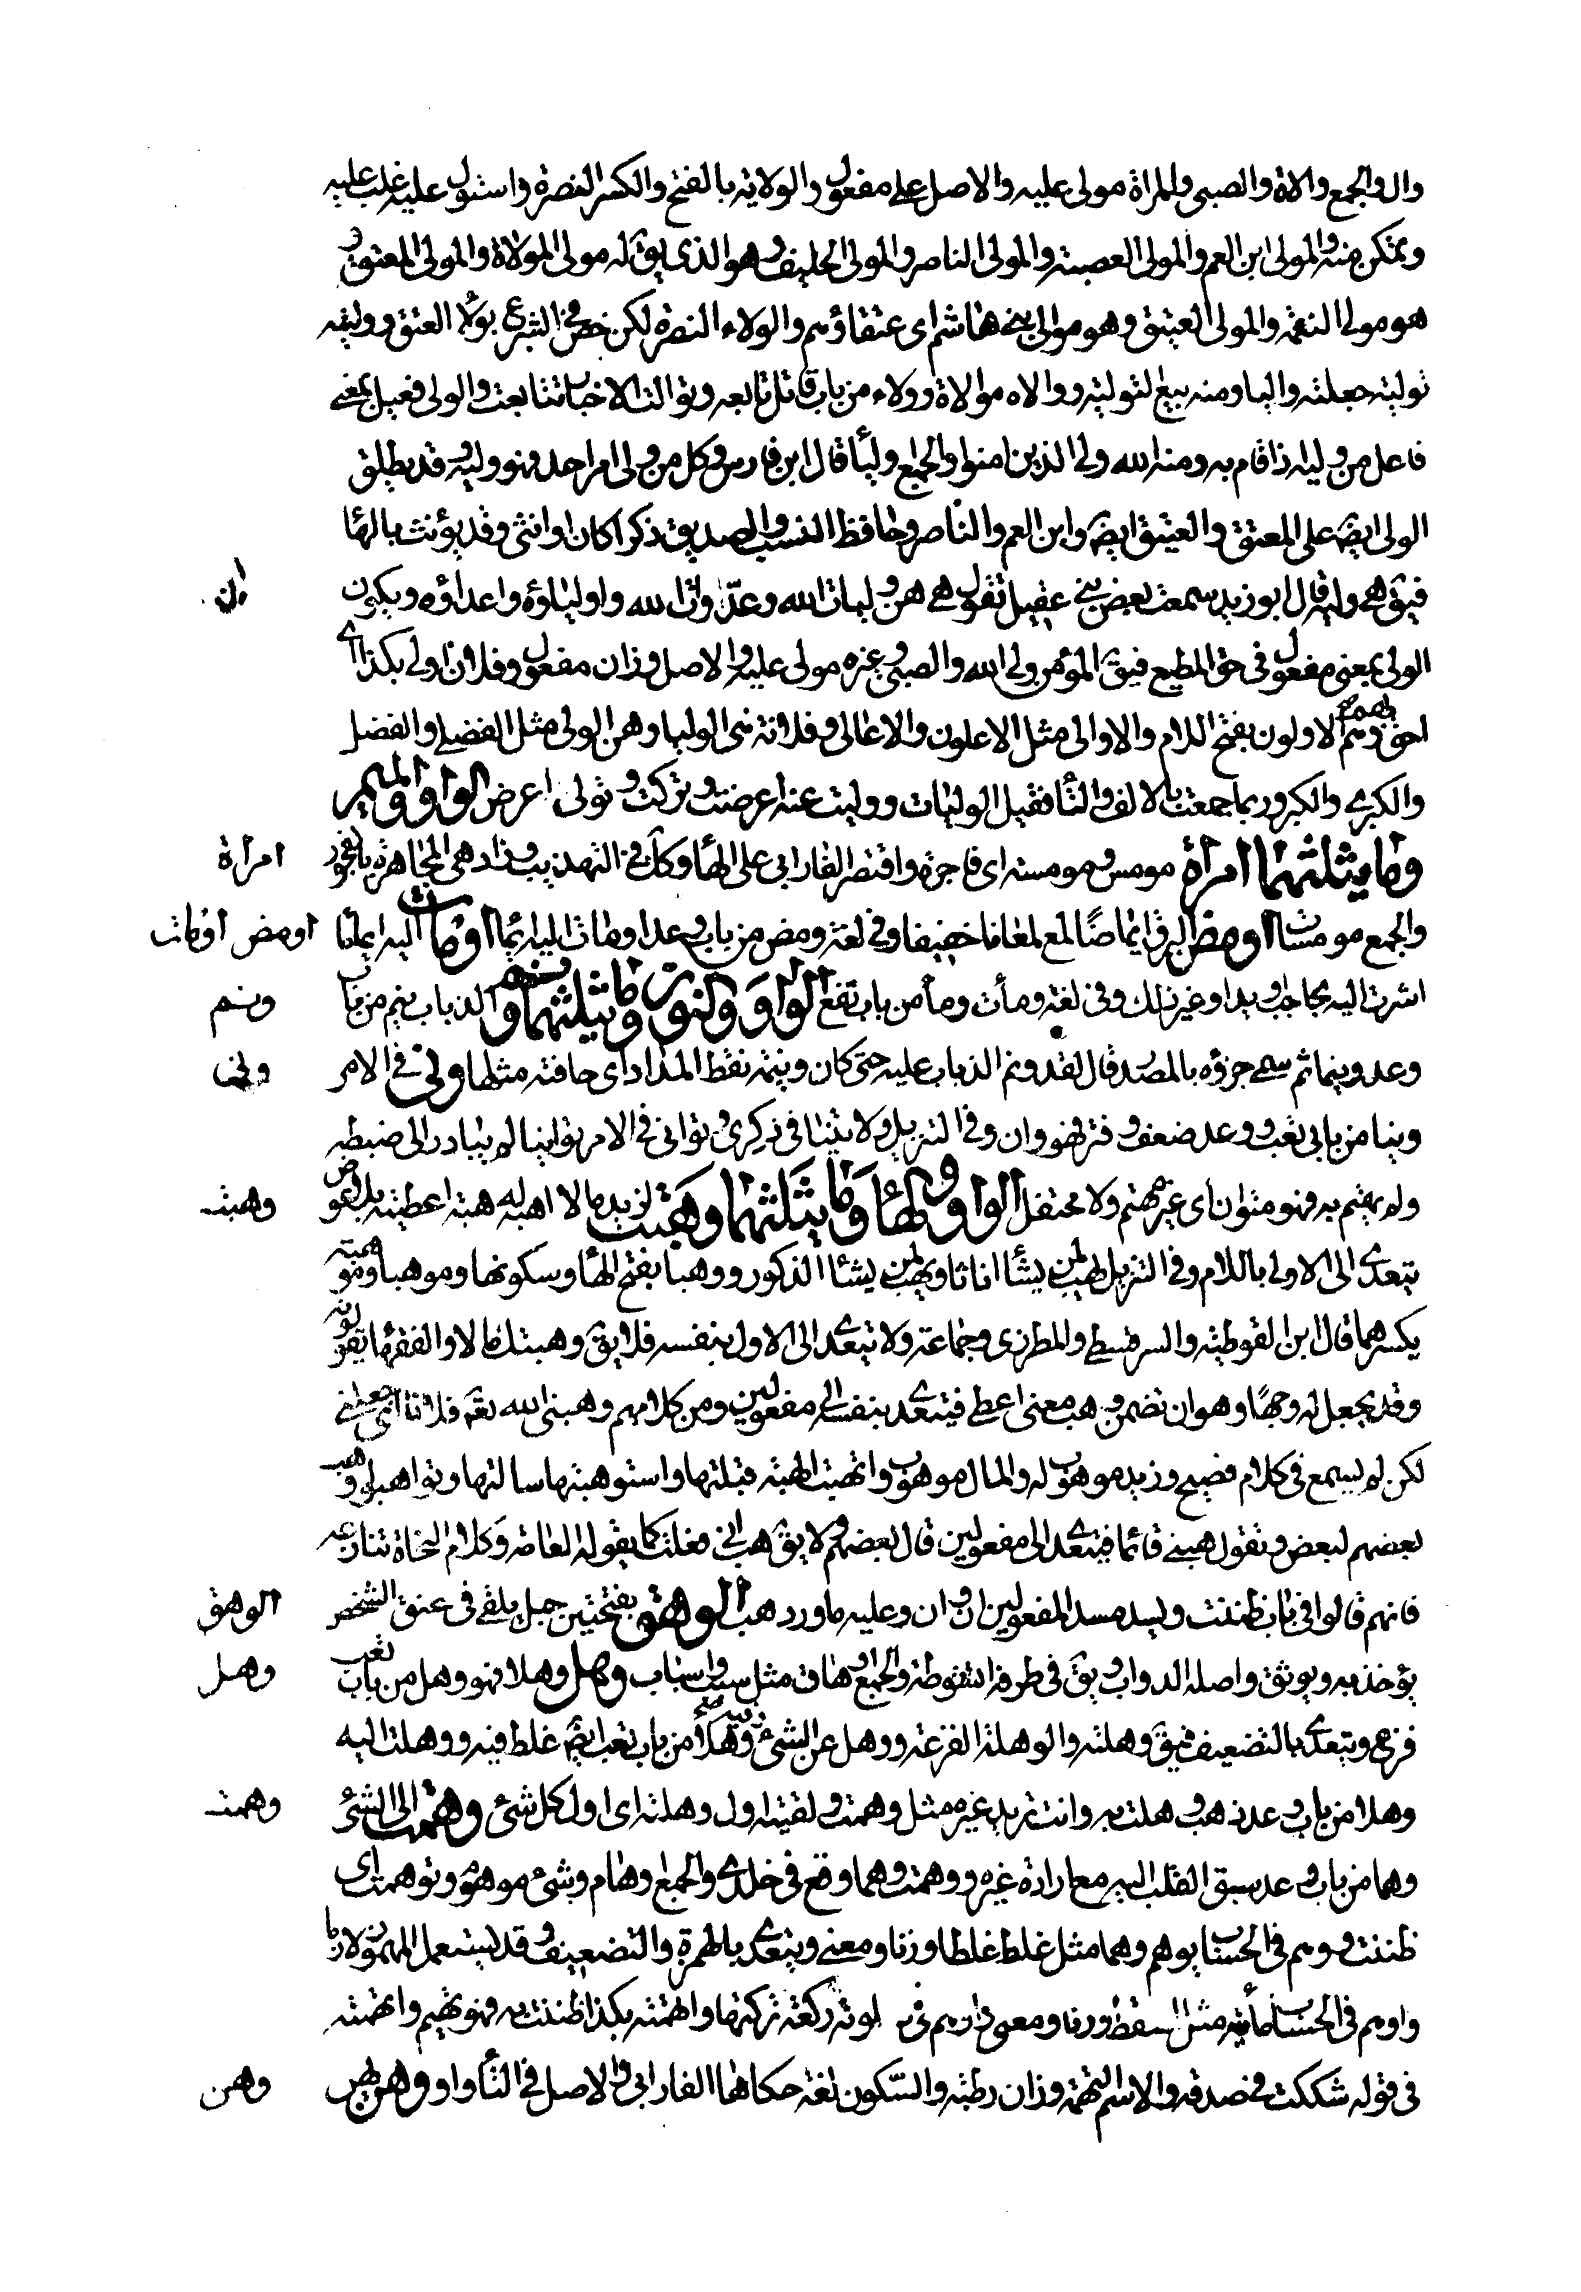 وال والجمع ولاة والصبى والمراة مولى عليه والاصل على مفعول والولاية بالفتح والكسر النصرة واستولى عليه غلب عليه
وتمكن منه والمولى ابن العم والمولى العصبة والمولى الناصر والمولى الحليف وهو الذى يق له مولى الموالاة والمولى المعتق و
هو مولى النعمة والمولى العتيق وهو موالى بنى هاشم اى عتقاؤهم والولاء النصرة لكن خص فى الشرع بولاء العتق ووليته
تولية جعلته واليا ومنه بيع التولية ووالاه موالاة وولاء من باب قاتل تابعه وتوالت الاخبار تتابعت والولى فعيل بمعنى
فاعل من وليه اذا قام به ومنه الله ولى الذين امنوا والجمع اوليأ قال ابن فارس وكل من ولى امر احد فهو وليه وقد يطلق
الولى ايضا على المعتق والعتيق ايضا وابن العم والناصر وحافظ النسب والصديق ذكرا كان او انثى وقد يؤنث بالهأ
فيق هى ولية قال ابو زيد سمعت بعض بنى عقيل تقول هى هن وليات الله وعدوات الله واولياؤه واعداؤه ويكون
الولى بمعنى مفعول فى حق المطيع فيق المؤمن ولى الله والصبى وغيره مولى عليه والاصل وزان مفعول وفلان اولى بكذا اى
احق به وهم الاولون بفتح اللام والاوالى مثل الاعلون والاعالى وفلانة هى الوليا وهن الولى مثل الفضلى والفضل
والكبرى والكبر وربما جمعت بالالف والتأ فقيل الوليات ووليت عنه اعرضت وتركت وتولى اعرض الواو والميم
وما يثلثهما امرأة مومس ومومسة اى فاجرة واقتصر الفارابى على الهأ وكك فى التهذيب وزاد هى المجاهرة بالفجور
امرأة
والجمع مومسات اومض البرق ايماضا لمع لمعانا خفيفا وفى لغة ومض من باب وعد اومات اليه ايمأ اومات اليه ايمأ
اومض اومات
اشرت اليه بحاجب او يد او غير ذلك وفى لغة ومأت ومأ من باب نفع الواو والنون وما يثلثهما ونم الذباب ينم من باب
ونم
وعد ونيما ثم سمى خرؤه بالمصدر قال لقد ونم الذباب عليه حتى كان ونيمه نقط المداد اى حافته مثلها ونى فى الامر
ونى
ونيا من بابى تعب ووعد ضعف وفتر فهو وان وفى التنزيل ولا تنيا فى ذكرى وتوانى فى الامر توانيا لم يبادر الى ضبطه
ولم يهتم به فهو متوان اى غير مهتم ولا محتفل الواو والهأ وما يثلثهما وهبت لزيد مالا اهبه له هبة اعطيته بلا عوض
وهبت
يتعدى الى الاول باللام وفى التنزيل يهب لمن يشأ اناثا ويهب لمن يشأ الذكور ووهبا بفتح الهأ وسكونها وموهبا وموهبة
بكسرهما قال ابن القوطية والسرقسطى والمطرزى وجماعة ولا يتعدى الى الاول بنفسه فلا يق وهبتك مالا والفقهأ يقولونه
وقد يجعل له وجها وهو ان تضمن وهب معنى اعطى فيتعدى بنفسه الى مفعولين ومن كلامهم وهبنى الله فداك اى جعلنى
لكن لم يسمع فى كلام فصيح وزيد موهوب له والمال موهوب واتهبت الهبة قبلتها واستوهبتها سالتها وتواهبوا وهب
بعضهم لبعض وتقول هبنى قائما فيتعدى الى مفعولين قال بعضهم ولا يق هب انى فعلت كما يقوله العامة وكلام النحاة تنازعه
فانهم قالوا فى باب ظننت ويسد مسد المفعولين ان وان وعليه ما ورد هب الوهق بفتحتين حبل يلقى فى عنق الشخص
الوهق
يؤخذ به ويوثق واصله للدواب ويق فى طرفه انشوطة والجمع اوهاق مثل سبب واسباب وهل وهلا فهو وهل من باب تعب
وهل
فزع ويتعدى بالتضعيف فيق وهلته والوهلة الفزعة ووهل عن الشئ وفيه وهلا من باب تعب ايضا غلط فيه ووهلت اليه
وهلا من باب وعد ذهب وهلت به وانت تريد غيره مثل وهمت ولقيته اول وهلة اى اول كل شئ وهمت الى الشئ
وهمت
وهما من باب وعد سبق القلب اليه مع ارادة غيره ووهمت وهما وقع فى خلدى والجمع اوهام وشئ موهوم وتوهمت اى
ظننت ووهم فى الحساب يوهم وهما مثل غلط غلطا وزنا ومعنى ويتعدى بالهمزة والتضعيف وقد يستعمل المهموز لازما
واوهم فى الحساب مأية مثل اسقط وزنا ومعنى واوهم من صلوته ركعة تركها واتهمته بكذا ظننت به فهو تهيم واتهمته
فى قوله شككت فى صدقه والاسم التهمة وزان رطبة والسكون لغة حكاها الفارابى والاصل فى التأ واو وهن يهن
وهن